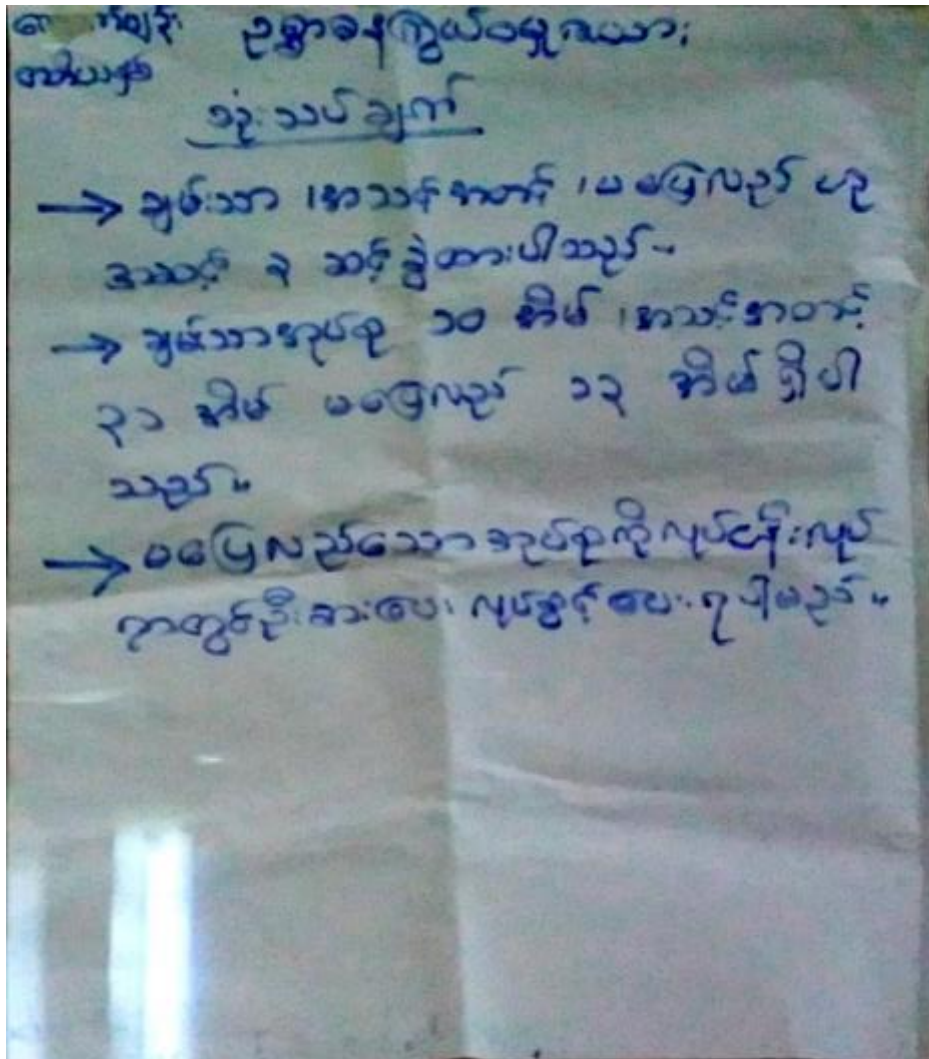 ဥစ္စာဓနကြွယ်ဝမှုဇယား
သုံးသပ်ချက်
→ ချမ်းသာ ၊ အသင့်အတင့် ၊ မပြေလည် ဟူ
အဆင့် ၃ ဆင့် ခွဲထားပါသည်။
→ ချမ်းသာအုပ်စု ၁၀ အိမ် ၊ အသင့်အတင့်
၃၁ အိမ် မပြေလည် ၁၃ အိမ် ရှိပါ
သည်။
→ မပြေလည်သော အုပ်စုကို လုပ်ငန်းလုပ်
ရာတွင် ဦးစားပေး လုပ်ခွင့် ပေးရပါမည်။